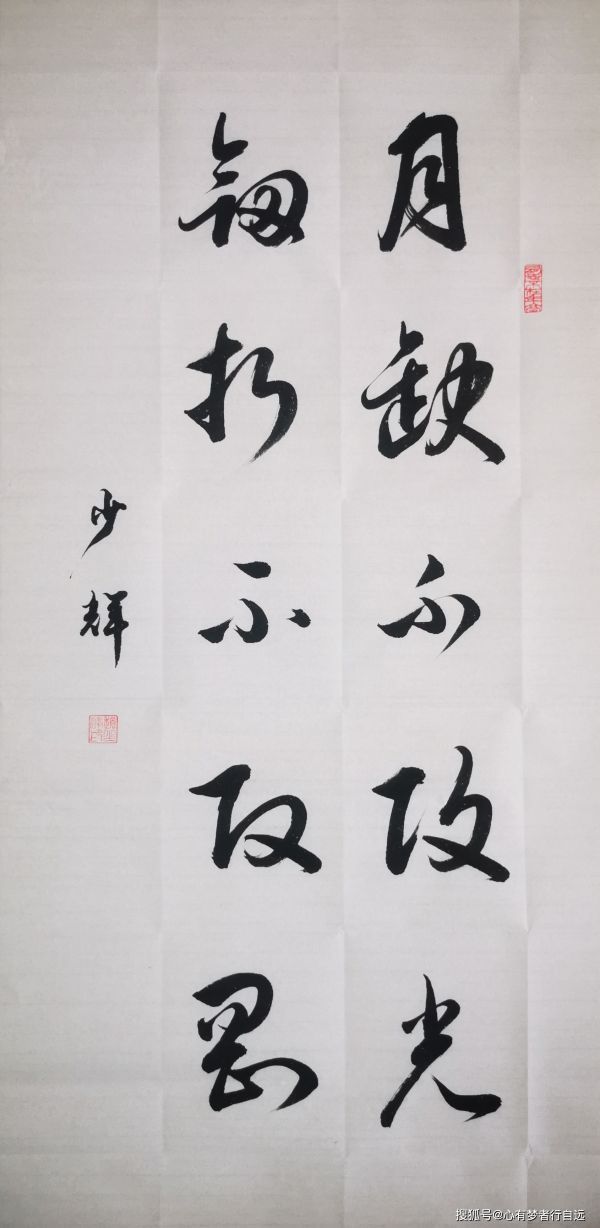 月缺不改光
釼折不改剛
少輝
搜狐号@心有梦者行自远